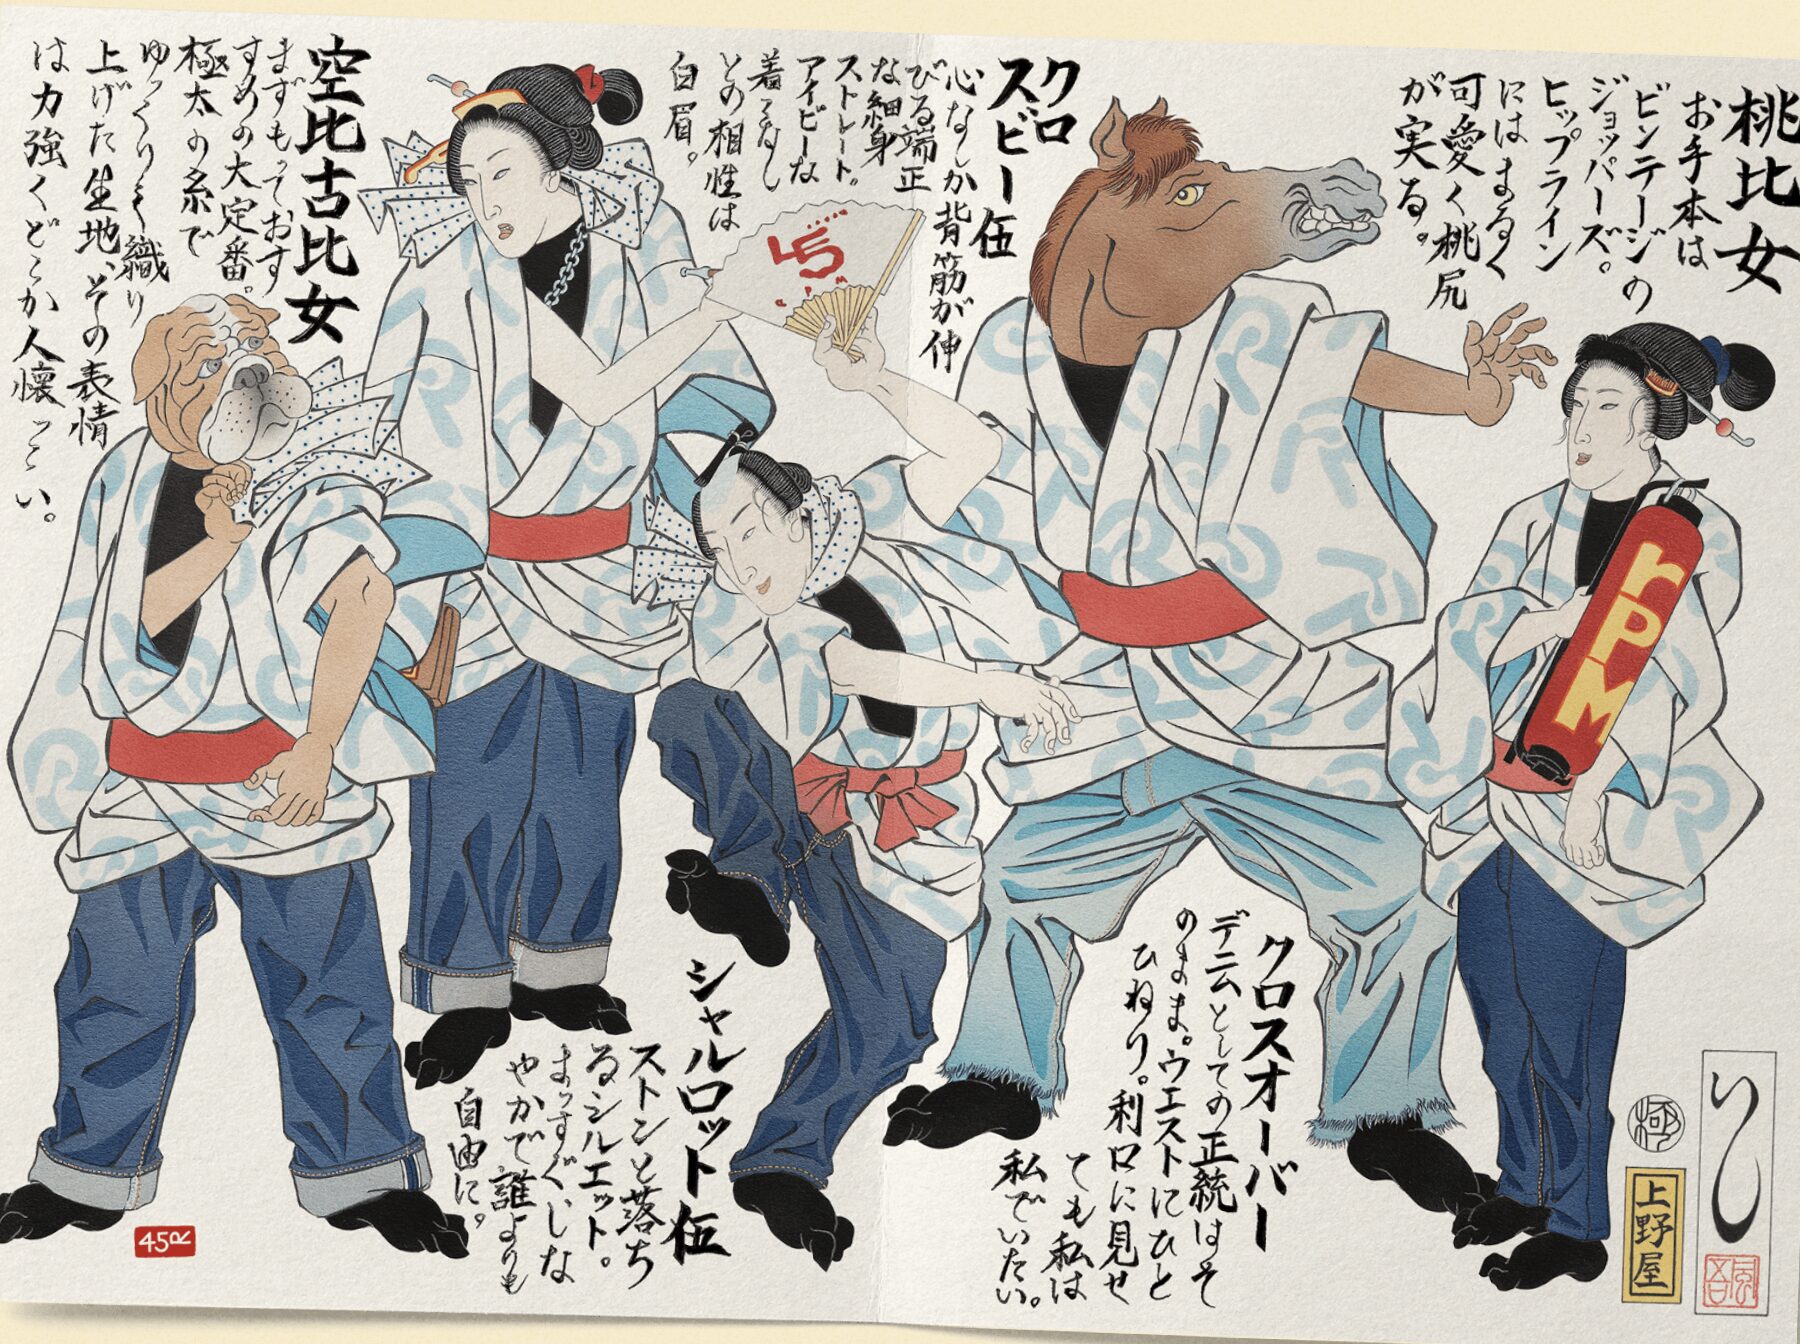 桃比女
お手本は
ビンテージの
ジョッパーズ。
ヒップライン
にはまるく
可愛く桃尻
が実る。
クロ
スビー伍
心なしか背筋が伸
びる端正
な細身
ストレート。
アイビーな
着こなし
との相性は
白眉。
空比古比女
まずもっておす
すめの大定番。
極太の糸で
ゆっくりと織り
上げた生地、その表情
は力強くどこか人懐っこい。
45
rpm
rPM
クロスオーバー
デニムとしての正統はそ
のまま。ウエストにひと
ひねり。利口に見せ
ても私は
私でいたい。
シャルロット伍
ストンと落ち
るシルエット。
まっすぐ、しな
やかで誰よりも
自由に。
45R
極
上野屋